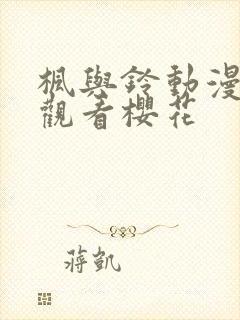 楓與鈴動漫
觀看櫻花
蔣凱